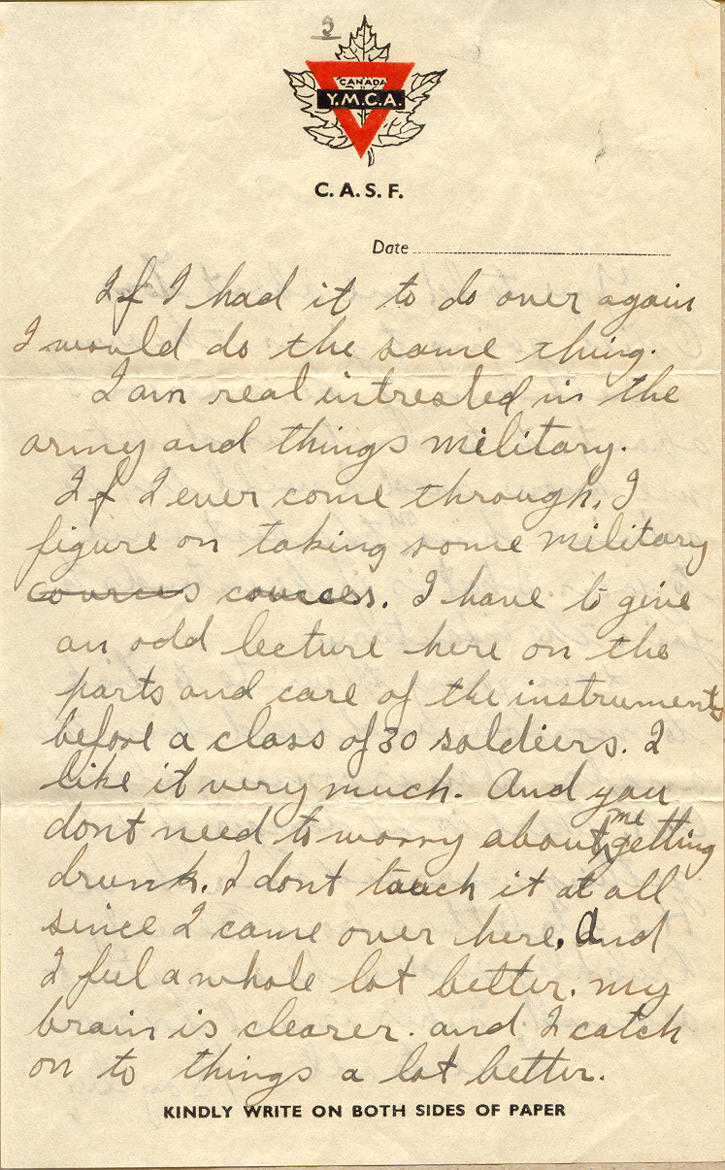 3
CANADA
Y.M.C.A.
C. A. S. F.
Date
If I had it to do over again
I would do the same thing.
I am real intrested in the
army and things military.
If I ever come through, I
figure on taking some military
cources cources. I have to give
an odd lecture here on the
parts and care of the instruments
before a class of 30 soldiers. I
like it very much. And you
dont need to worry about me getting
drunk. I dont touch it at all
since I came over here. And
I feel a whole lot better. my
brain is clearer. and I catch
on to things a lot better.
KINDLY WRITE ON BOTH SIDES OF PAPER